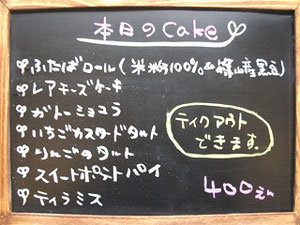 本日のCake
ふたばロール(米粉100%の篠山産黒豆)
レアチーズケーキ
ガトーショコラ
いちごカスタードタルト
りんごのタルト
スイートポテトパイ
ティラミス
テイクアウト
できます。
400えん